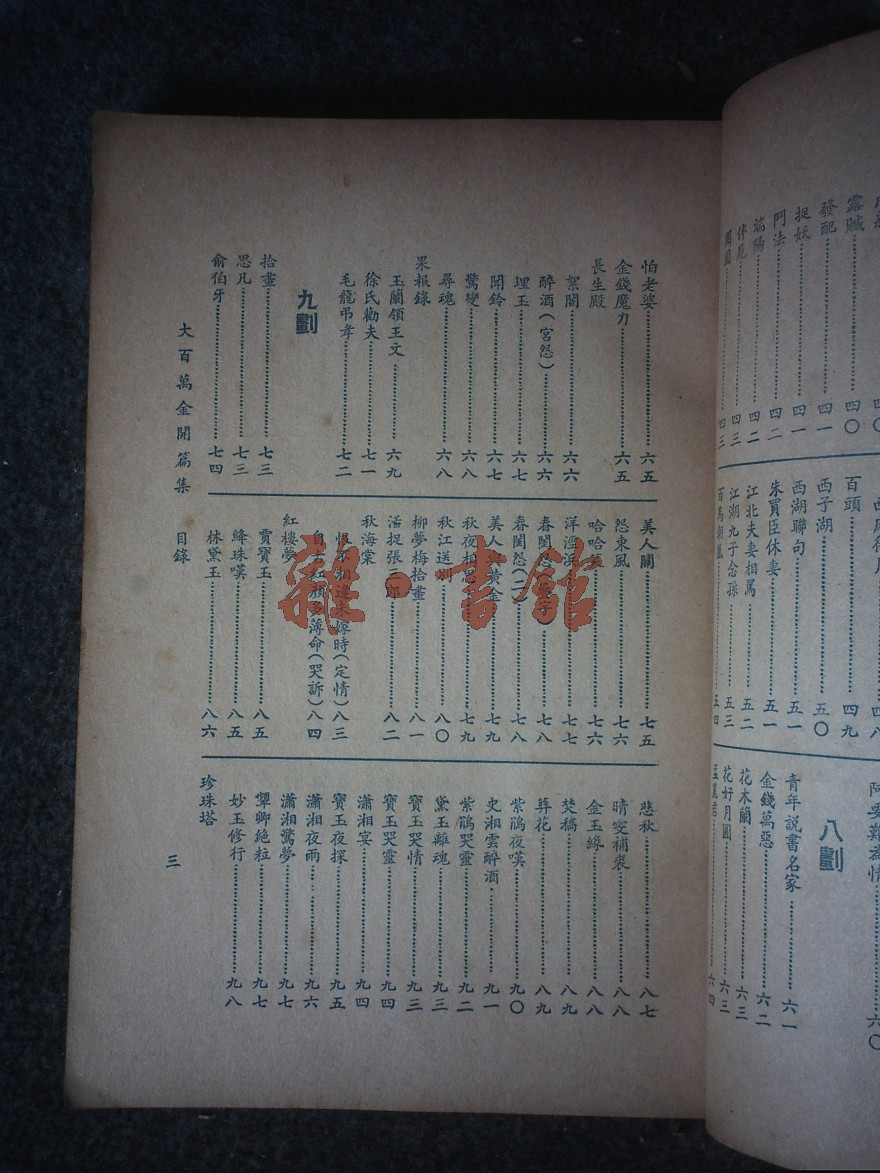 發配……四一
捉妖……四一
鬥法……四二
端陽……四二
西子湖……五〇
西湖聯句……五一
朱買臣休妻……五一
江北夫妻相罵……五二
江湖九子念孫……五三
八劃
青年說書名家……六一
金錢萬惡……六二
花木蘭……六三
花好月圓……六三
怕老婆……六五
金錢魔力……六五
長生殿
絮閣……六六
醉酒(宮怨)……六六
埋玉……六七
聞鈴……六七
驚變……六八
尋魂……六八
果報錄
玉蘭領王文……六九
徐氏勸夫……七一
毛龍弔孝……七二
九劃
拾畫……七三
思凡……七三
俞伯牙……七四
美人關……七五
怨東風……七六
哈哈……七六
洋涇浜……七七
春閨怨……七八
春閨怨(二)……七八
美人與黃金……七九
秋夜相思……七九
秋江送別……八〇
柳夢梅拾畫……八一
活捉張三郎……八二
秋海棠
恨不相逢未嫁時(定情)八三
自古紅顏多薄命(哭訴)八四
紅樓夢
賈寶玉……八五
絳珠嘆……八五
林黛玉……八六
悲秋……八七
晴雯補裘……八八
金玉緣……八八
焚稿……八九
葬花……八九
紫鵑夜嘆……九〇
史湘雲醉酒……九一
紫鵑哭靈……九二
黛玉離魂……九三
寶玉哭情……九三
寶玉哭靈……九四
瀟湘宴……九四
寶玉夜探……九五
瀟湘夜雨……九六
瀟湘驚夢……九七
顰卿絕粒……九七
妙玉修行……九八
珍珠塔
大百萬金開篇集 目錄
三
雜·書館